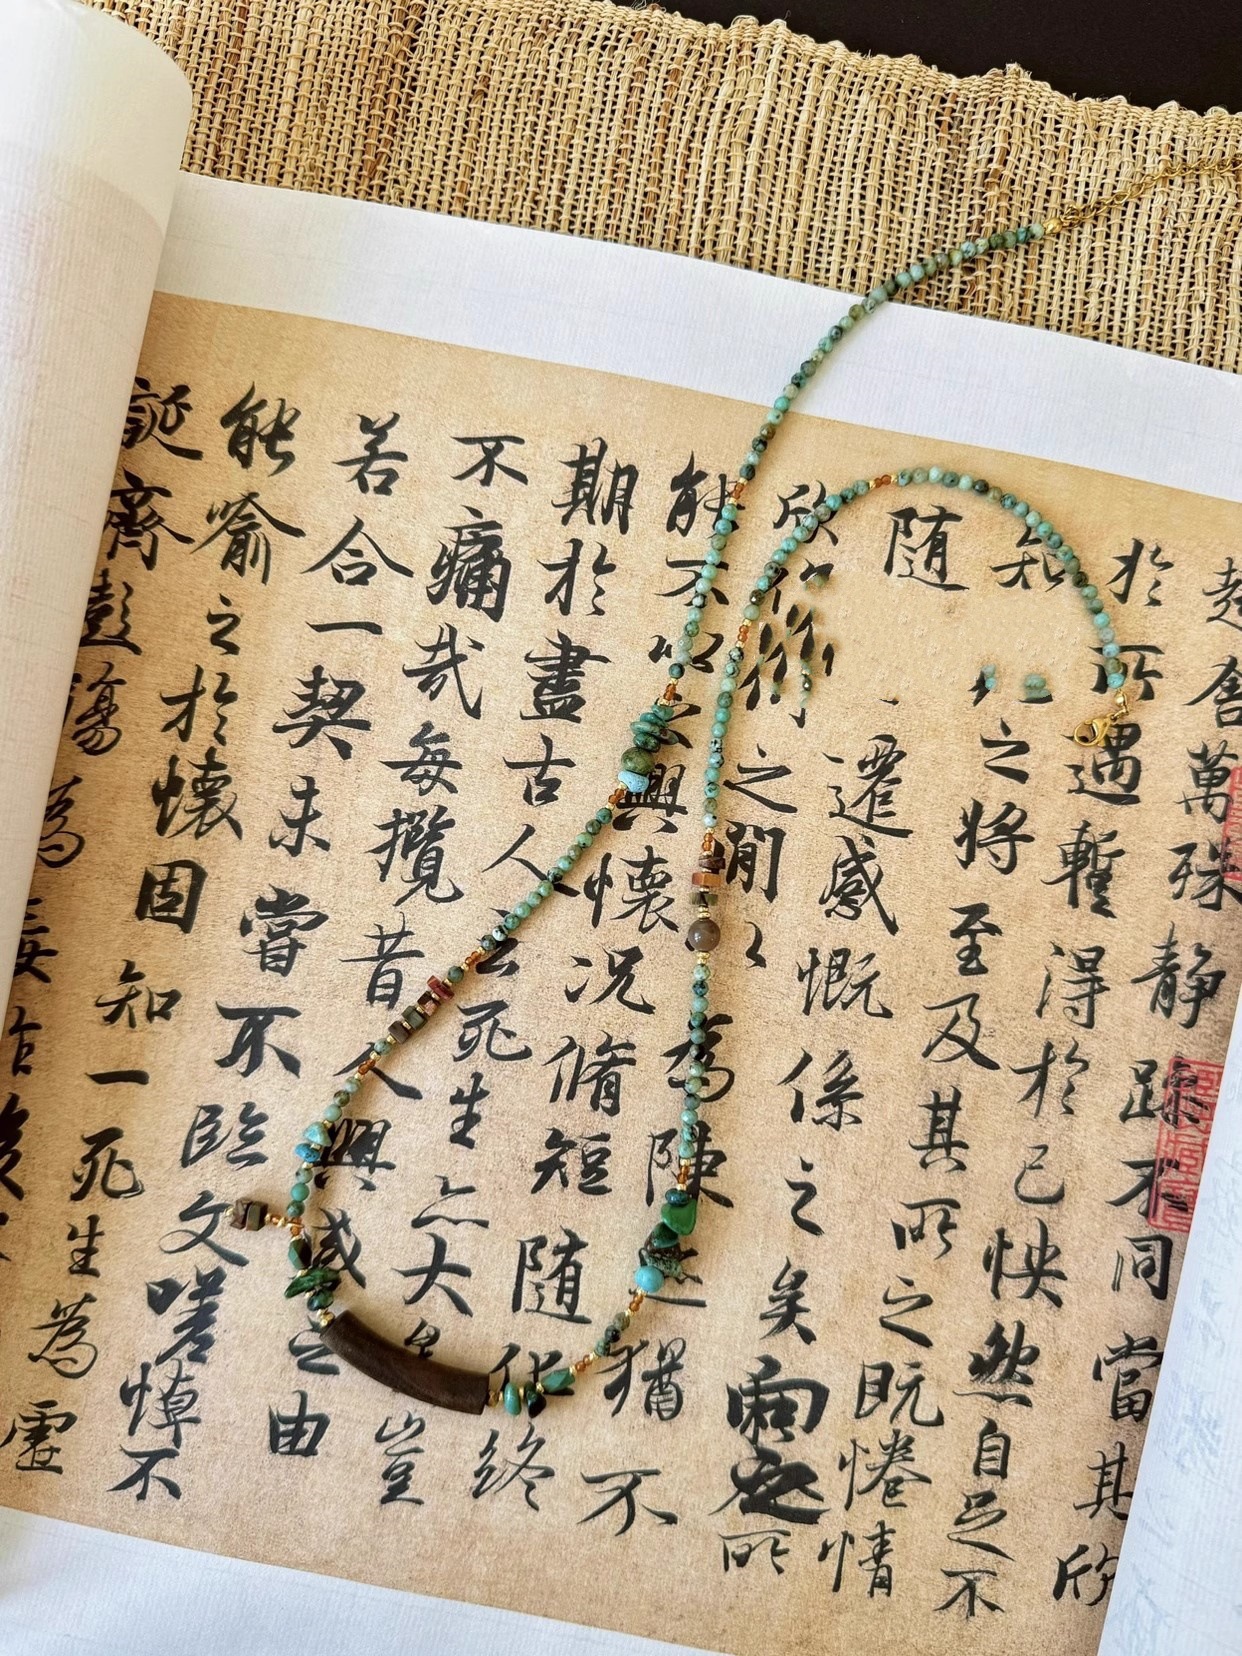 舍萬殊静躁不同當其欣
於所遇蹔得於己怏然自足不
知之將至及其所之既惓情
随遷感慨係之矣向之所
欣之閒為陳迹猶不
能不以之興懷況脩短随化終
期於盡古人云死生亦大矣豈
不痛哉每攬昔人興感之由
若合一契未嘗不臨文嗟悼不
能喻之於懷固知一死生為虛
誕齊彭殤為妄作後